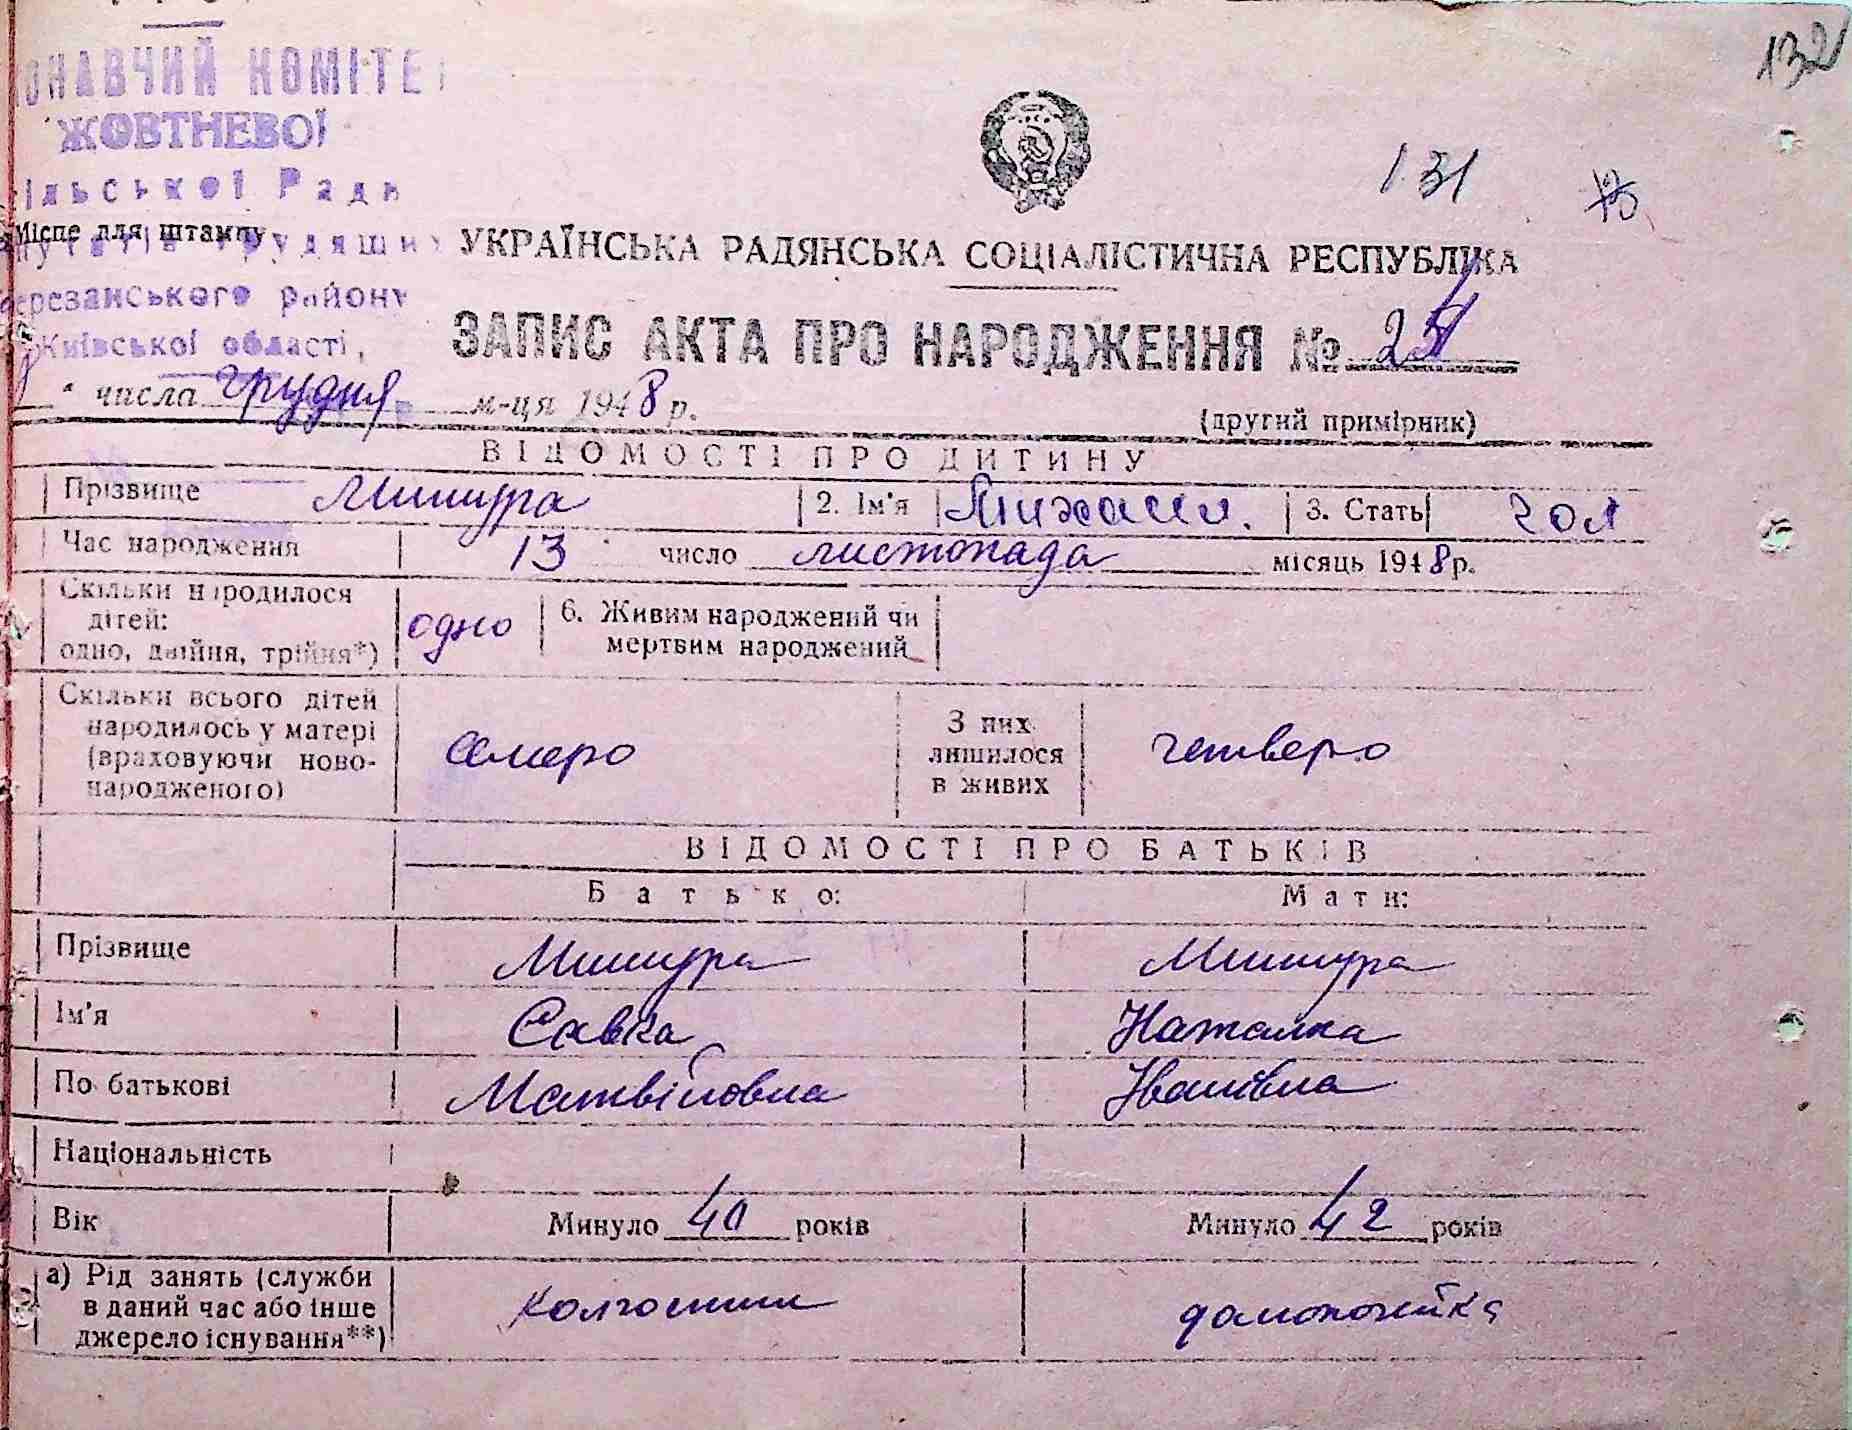 132
ОНАВЧИЙ КОМІТЕ
ЖОВТНЕВОЇ
ільської Ради
131
Місце для штампу
трудящих
УКРАЇНСЬКА РАДЯНСЬКА СОЦІАЛІСТИЧНА РЕСПУБЛІКА
Березанського району
Київської області,
ЗАПИС АКТА ПРО НАРОДЖЕННЯ №
числа грудня м-ця 1948 р.
(другий примірник)
ВІДОМОСТІ ПРО ДИТИНУ
Прізвище Мишура 2. Ім'я Михаил. 3. Стать чол
Час народження 13 число листопада місяць 1948 р.
Скільки народилося дітей: одно, двійня, трійня*) одно 6. Живим народжений чи мертвим народжений
Скільки всього дітей народилось у матері (враховуючи новонародженого) семеро З них лишилося в живих четверо
ВІДОМОСТІ ПРО БАТЬКІВ
Батько: Мати:
Прізвище Мишура Мишура
Ім'я Савка Наталка
По батькові Матвійович Іванівна
Національність
Вік Минуло 40 років Минуло 42 років
а) Рід занять (служби в даний час або інше джерело існування**) колгоспник домохазяйка